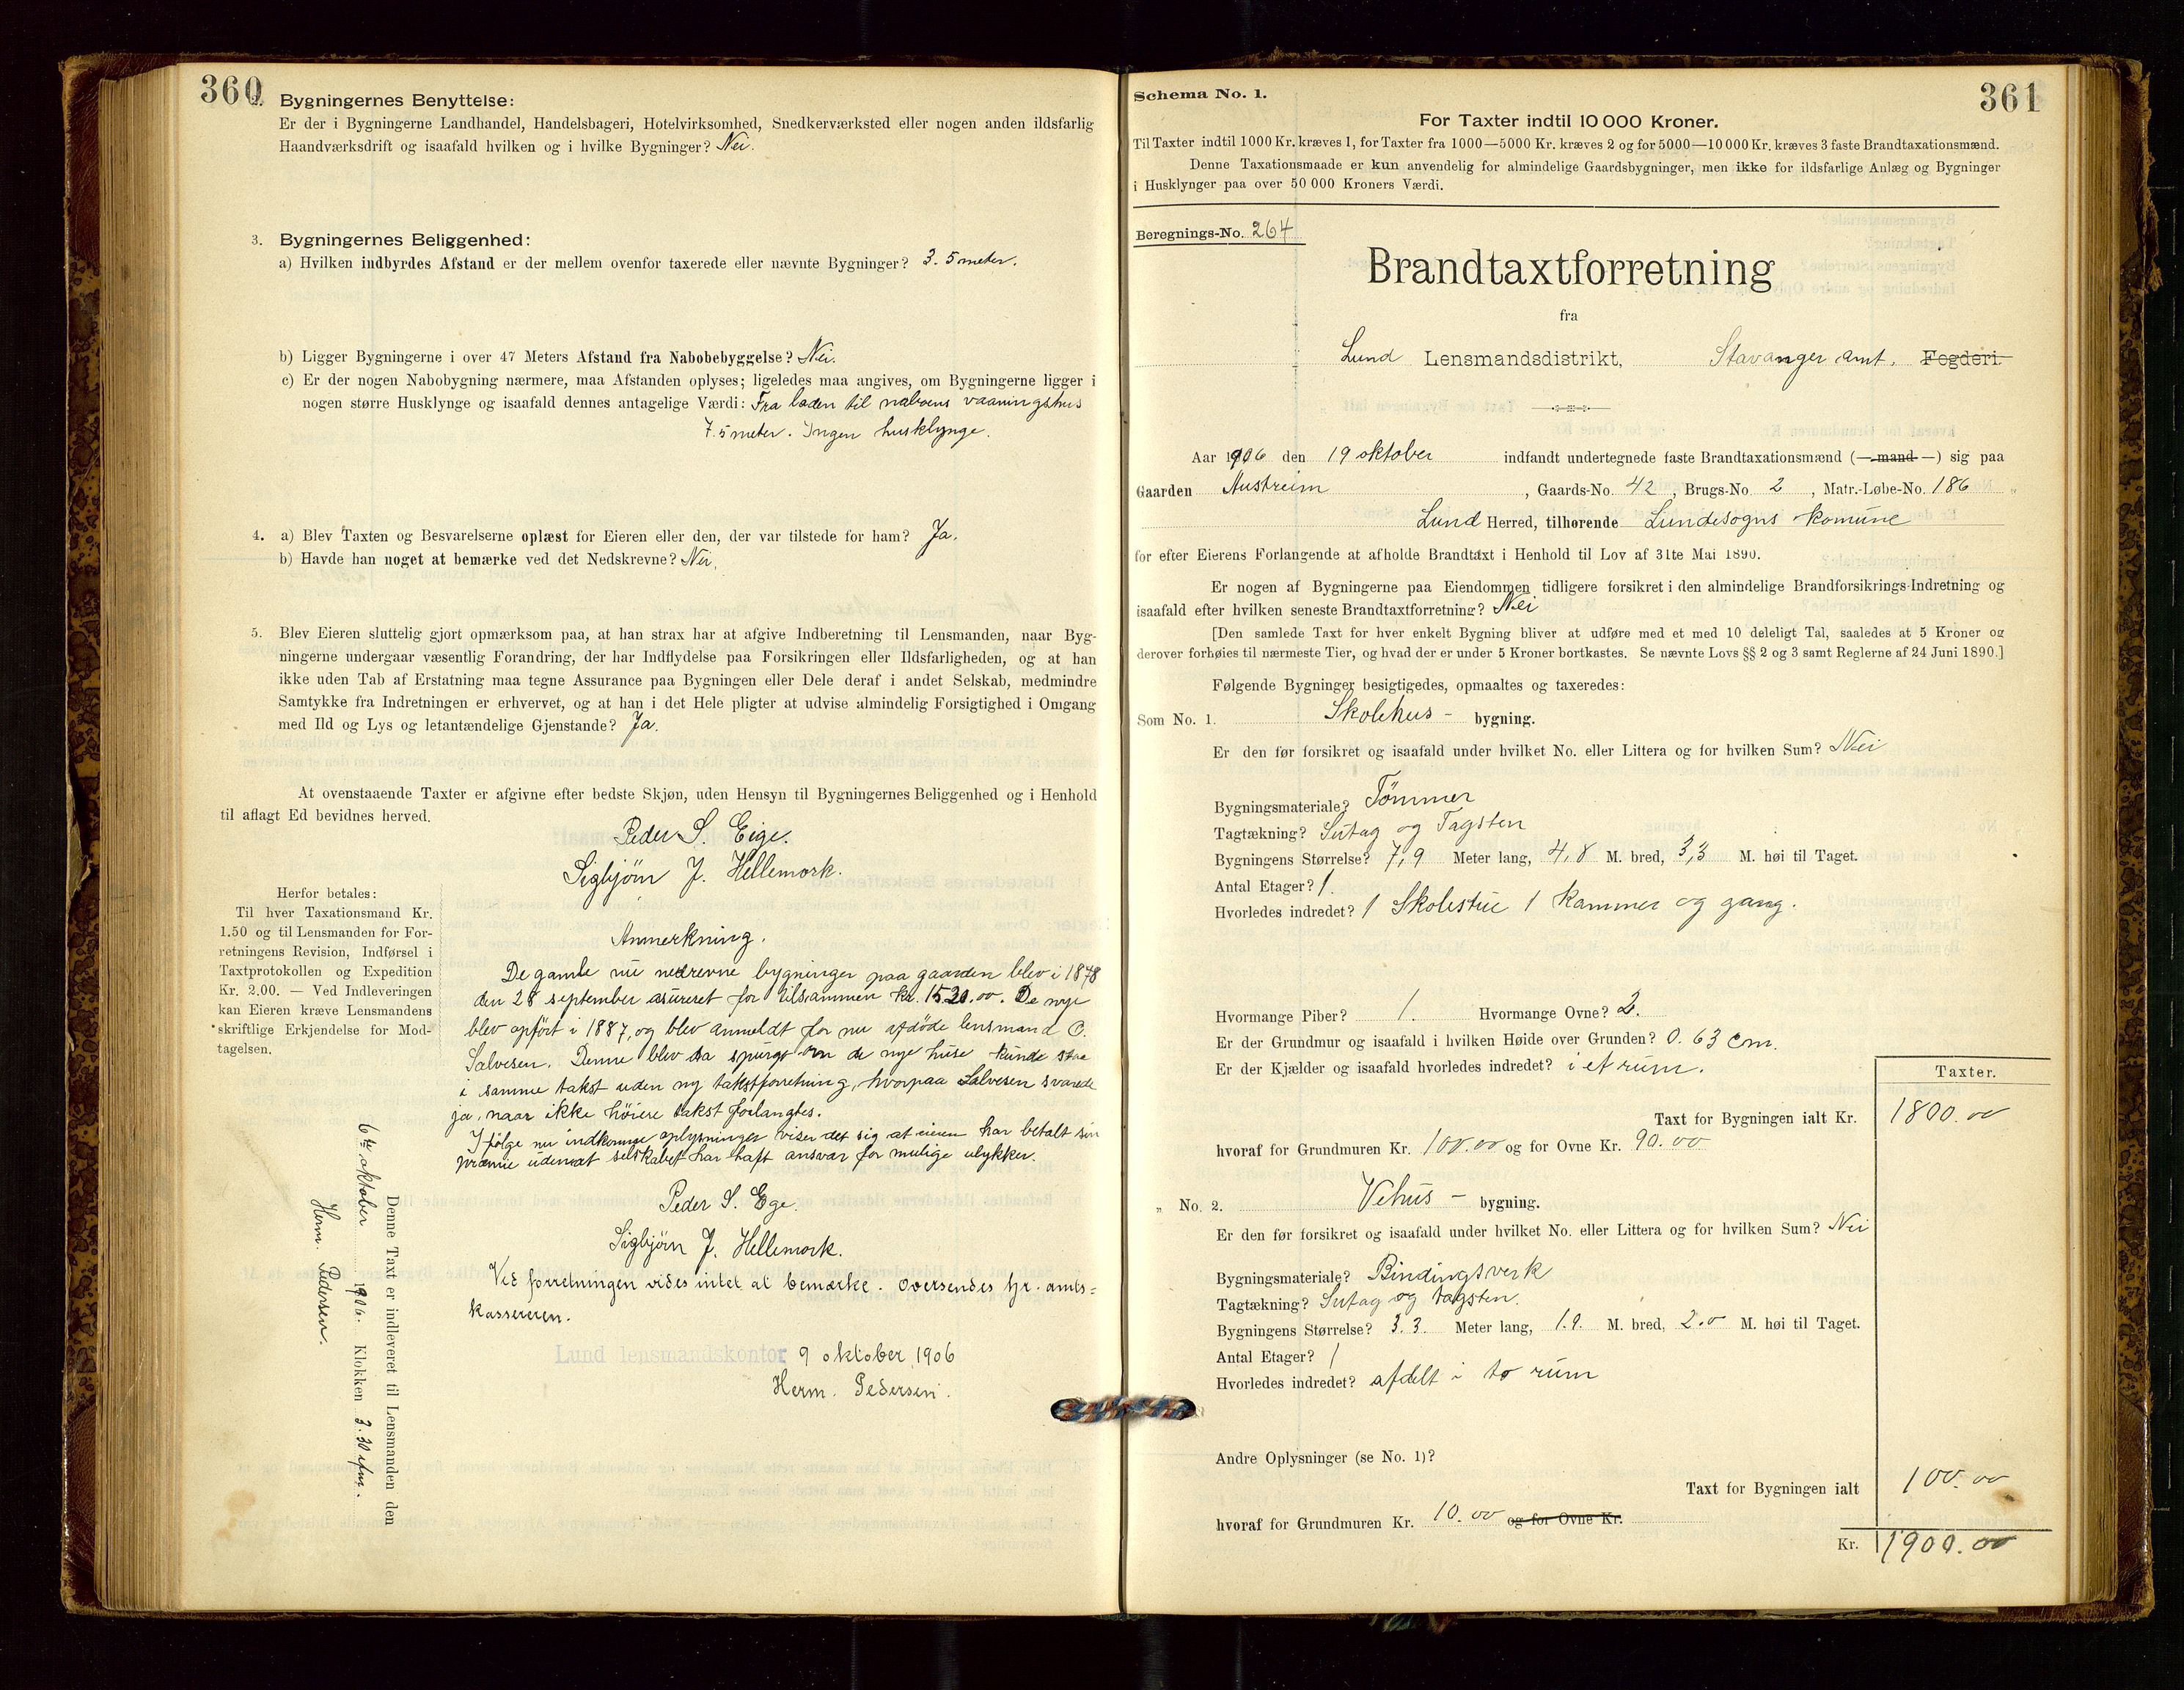 360
2. Bygningernes Benyttelse:
Er der i Bygningerne Landhandel, Handelsbageri, Hotelvirksomhed, Snedkerværksted eller nogen anden ildsfarlig
Haandværksdrift og isaafald hvilken og i hvilke Bygninger? Nei.
3. Bygningernes Beliggenhed:
a) Hvilken indbyrdes Afstand er der mellem ovenfor taxerede eller nævnte Bygninger? 3.5 meter.
b) Ligger Bygningerne i over 47 Meters Afstand fra Nabobebyggelse? Nei.
c) Er der nogen Nabobygning nærmere, maa Afstanden oplyses; ligeledes maa angives, om Bygningerne ligger i
nogen større Husklynge og isaafald dennes antagelige Værdi: Fra laden til naboens vaaningshus
7.5 meter. Ingen husklynge.
4. a) Blev Taxten og Besvarelserne oplæst for Eieren eller den, der var tilstede for ham? Ja.
b) Havde han noget at bemærke ved det Nedskrevne? Nei.
5. Blev Eieren sluttelig gjort opmærksom paa, at han strax har at afgive Indberetning til Lensmanden, naar Byg-
ningerne undergaar væsentlig Forandring, der har Indflydelse paa Forsikringen eller Ildsfarligheden, og at han
ikke uden Tab af Erstatning maa tegne Assurance paa Bygningen eller Dele deraf i andet Selskab, medmindre
Samtykke fra Indretningen er erhvervet, og at han i det Hele pligter at udvise almindelig Forsigtighed i Omgang
med Ild og Lys og letantændelige Gjenstande? Ja.
At ovenstaaende Taxter er afgivne efter bedste Skjøn, uden Hensyn til Bygningernes Beliggenhed og i Henhold
til aflagt Ed bevidnes herved.
Peder S. Eige.
Sigbjörn J. Hellemork.
Herfor betales:
Til hver Taxationsmand Kr.
1.50 og til Lensmanden for For-
retningens Revision, Indførsel i
Taxtprotokollen og Expedition
Kr. 2.00. — Ved Indleveringen
kan Eieren kræve Lensmandens
skriftlige Erkjendelse for Mod-
tagelsen.
Anmerkning.
De gamle nu nedrevne bygninger paa gaarden blev i 1878
den 28 september asureret for tilsammen kr. 1520.00. De nye
blev opført i 1887, og blev anmeldt for nu afdöde lensmand O.
Salvesen. Denne blev da spurgt om de nye huse kunde staa
i samme takst uden ny takstforretning, hvorpaa Salvesen svarede
ja, naar ikke höiere takst forlangtes.
Ifølge nu indkomne oplysninger viser det sig at eieren har betalt sin
præmie udenat selskabet har haft ansvar for mulige ulykker.
Peder S. Ege.
Sigbjörn J. Hellemork.
Ved forretningen vides intet at bemærke. Oversendes hr. amts-
kassereren.
Lund lensmandskontor 9 oktober 1906
Herm. Pedersen.
Denne Taxt er indleveret til Lensmanden den
6te oktober 1906. Klokken 3.30 efm.
Herm. Pedersen.
361
Schema No. 1.
For Taxter indtil 10 000 Kroner.
Til Taxter indtil 1000 Kr. kræves 1, for Taxter fra 1000—5000 Kr. kræves 2 og for 5000—10 000 Kr. kræves 3 faste Brandtaxationsmænd.
Denne Taxationsmaade er kun anvendelig for almindelige Gaardsbygninger, men ikke for ildsfarlige Anlæg og Bygninger
i Husklynger paa over 50 000 Kroners Værdi.
Beregnings-No. 264
Brandtaxtforretning
fra
Lund Lensmandsdistrikt, Stavanger amt. Fogderi
Aar 1906 den 19 oktober indfandt undertegnede faste Brandtaxationsmænd (—mand—) sig paa
Gaarden Austreim, Gaards-No. 42, Brugs-No. 2, Matr.-Løbe-No. 186
Lund Herred, tilhørende Lundesogns komune
for efter Eierens Forlangende at afholde Brandtaxt i Henhold til Lov af 31te Mai 1890.
Er nogen af Bygningerne paa Eiendommen tidligere forsikret i den almindelige Brandforsikrings-Indretning og
isaafald efter hvilken seneste Brandtaxtforretning? Nei
[Den samlede Taxt for hver enkelt Bygning bliver at udføre med et med 10 deleligt Tal, saaledes at 5 Kroner og
derover forhøies til nærmeste Tier, og hvad der er under 5 Kroner bortkastes. Se nævnte Lovs §§ 2 og 3 samt Reglerne af 24 Juni 1890.]
Følgende Bygninger besigtigedes, opmaaltes og taxeredes:
Som No. 1. Skolehus- bygning.
Er den før forsikret og isaafald under hvilket No. eller Littera og for hvilken Sum? Nei
Bygningsmateriale? Tömmer
Tagtækning? Sutag og Tagsten
Bygningens Størrelse? 7,9 Meter lang, 4,8 M. bred, 3,3 M. høi til Taget.
Antal Etager? 1.
Hvorledes indredet? 1 Skolestue 1 kammer og gang.
Hvormange Piber? 1. Hvormange Ovne? 2.
Er der Grundmur og isaafald i hvilken Høide over Grunden? 0.63 cm.
Er der Kjælder og isaafald hvorledes indredet? i et rum.
Taxter.
Taxt for Bygningen ialt Kr. 1800.00
hvoraf for Grundmuren Kr. 100.00 og for Ovne Kr. 90.00
" No. 2. Vehus- bygning.
Er den før forsikret og isaafald under hvilket No. eller Littera og for hvilken Sum? Nei
Bygningsmateriale? Bindingsverk
Tagtækning? Sutag og tagsten.
Bygningens Størrelse? 3.3. Meter lang, 1.9. M. bred, 2.0 M. høi til Taget.
Antal Etager? 1
Hvorledes indredet? afdelt i to rum
Andre Oplysninger (se No. 1)?
Taxt for Bygningen ialt 100.00
hvoraf for Grundmuren Kr. 10.00 og for Ovne Kr.
Kr. 1900.00